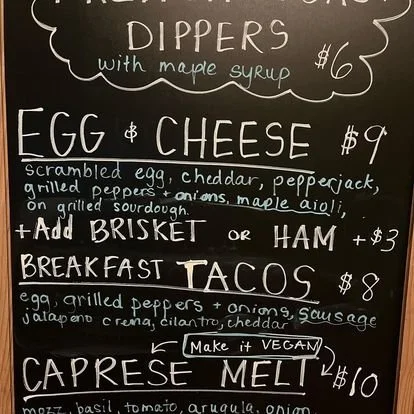 DIPPERS $6
with maple syrup
EGG & CHEESE $9
scrambled egg, cheddar, pepperjack,
grilled peppers + onions, maple aioli,
on grilled sourdough.
+Add BRISKET OR HAM +$3
BREAKFAST TACOS $8
egg, grilled peppers + onions, sausage
jalapeno crema, cilantro, cheddar
Make it VEGAN
CAPRESE MELT $10
mozz, basil, tomato, arugula, onion